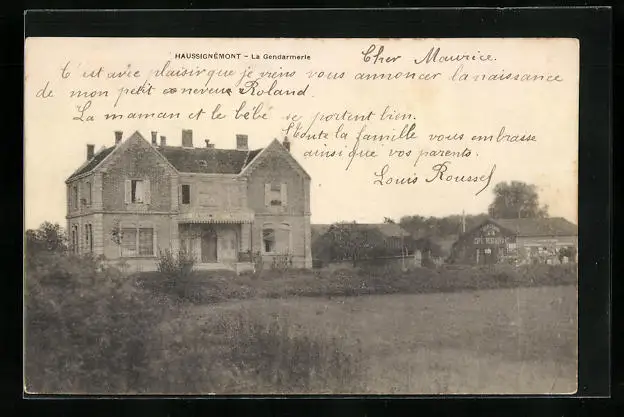 HAUSSIGNÉMONT - La Gendarmerie
Cher Maurice.
C'est avec plaisir que je viens vous annoncer la naissance
de mon petit neveu Roland.
La maman et le bébé se portent bien.
Toute la famille vous embrasse
ainsi que vos parents.
Louis Roussel
CAFÉ RESTAURANT